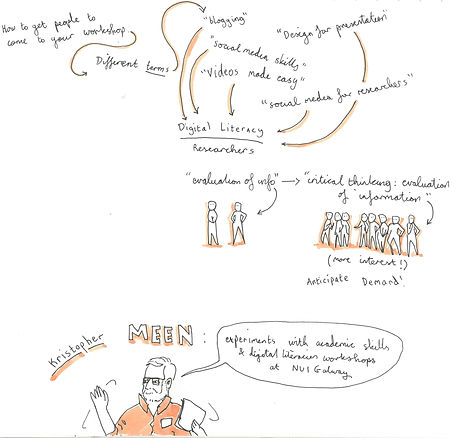 How to get people to
come to your workshop
Different terms
"blogging"
"social media skills"
"Videos made easy"
"Design for presentation"
"social media for researchers"
Digital Literacy
Researchers
"evaluation of info"
"critical thinking: evaluation
of information"
(more interest!)
Anticipate Demand!
Kristopher
MEEN:
experiments with academic skills
& digital literacies workshops
at NUI Galway